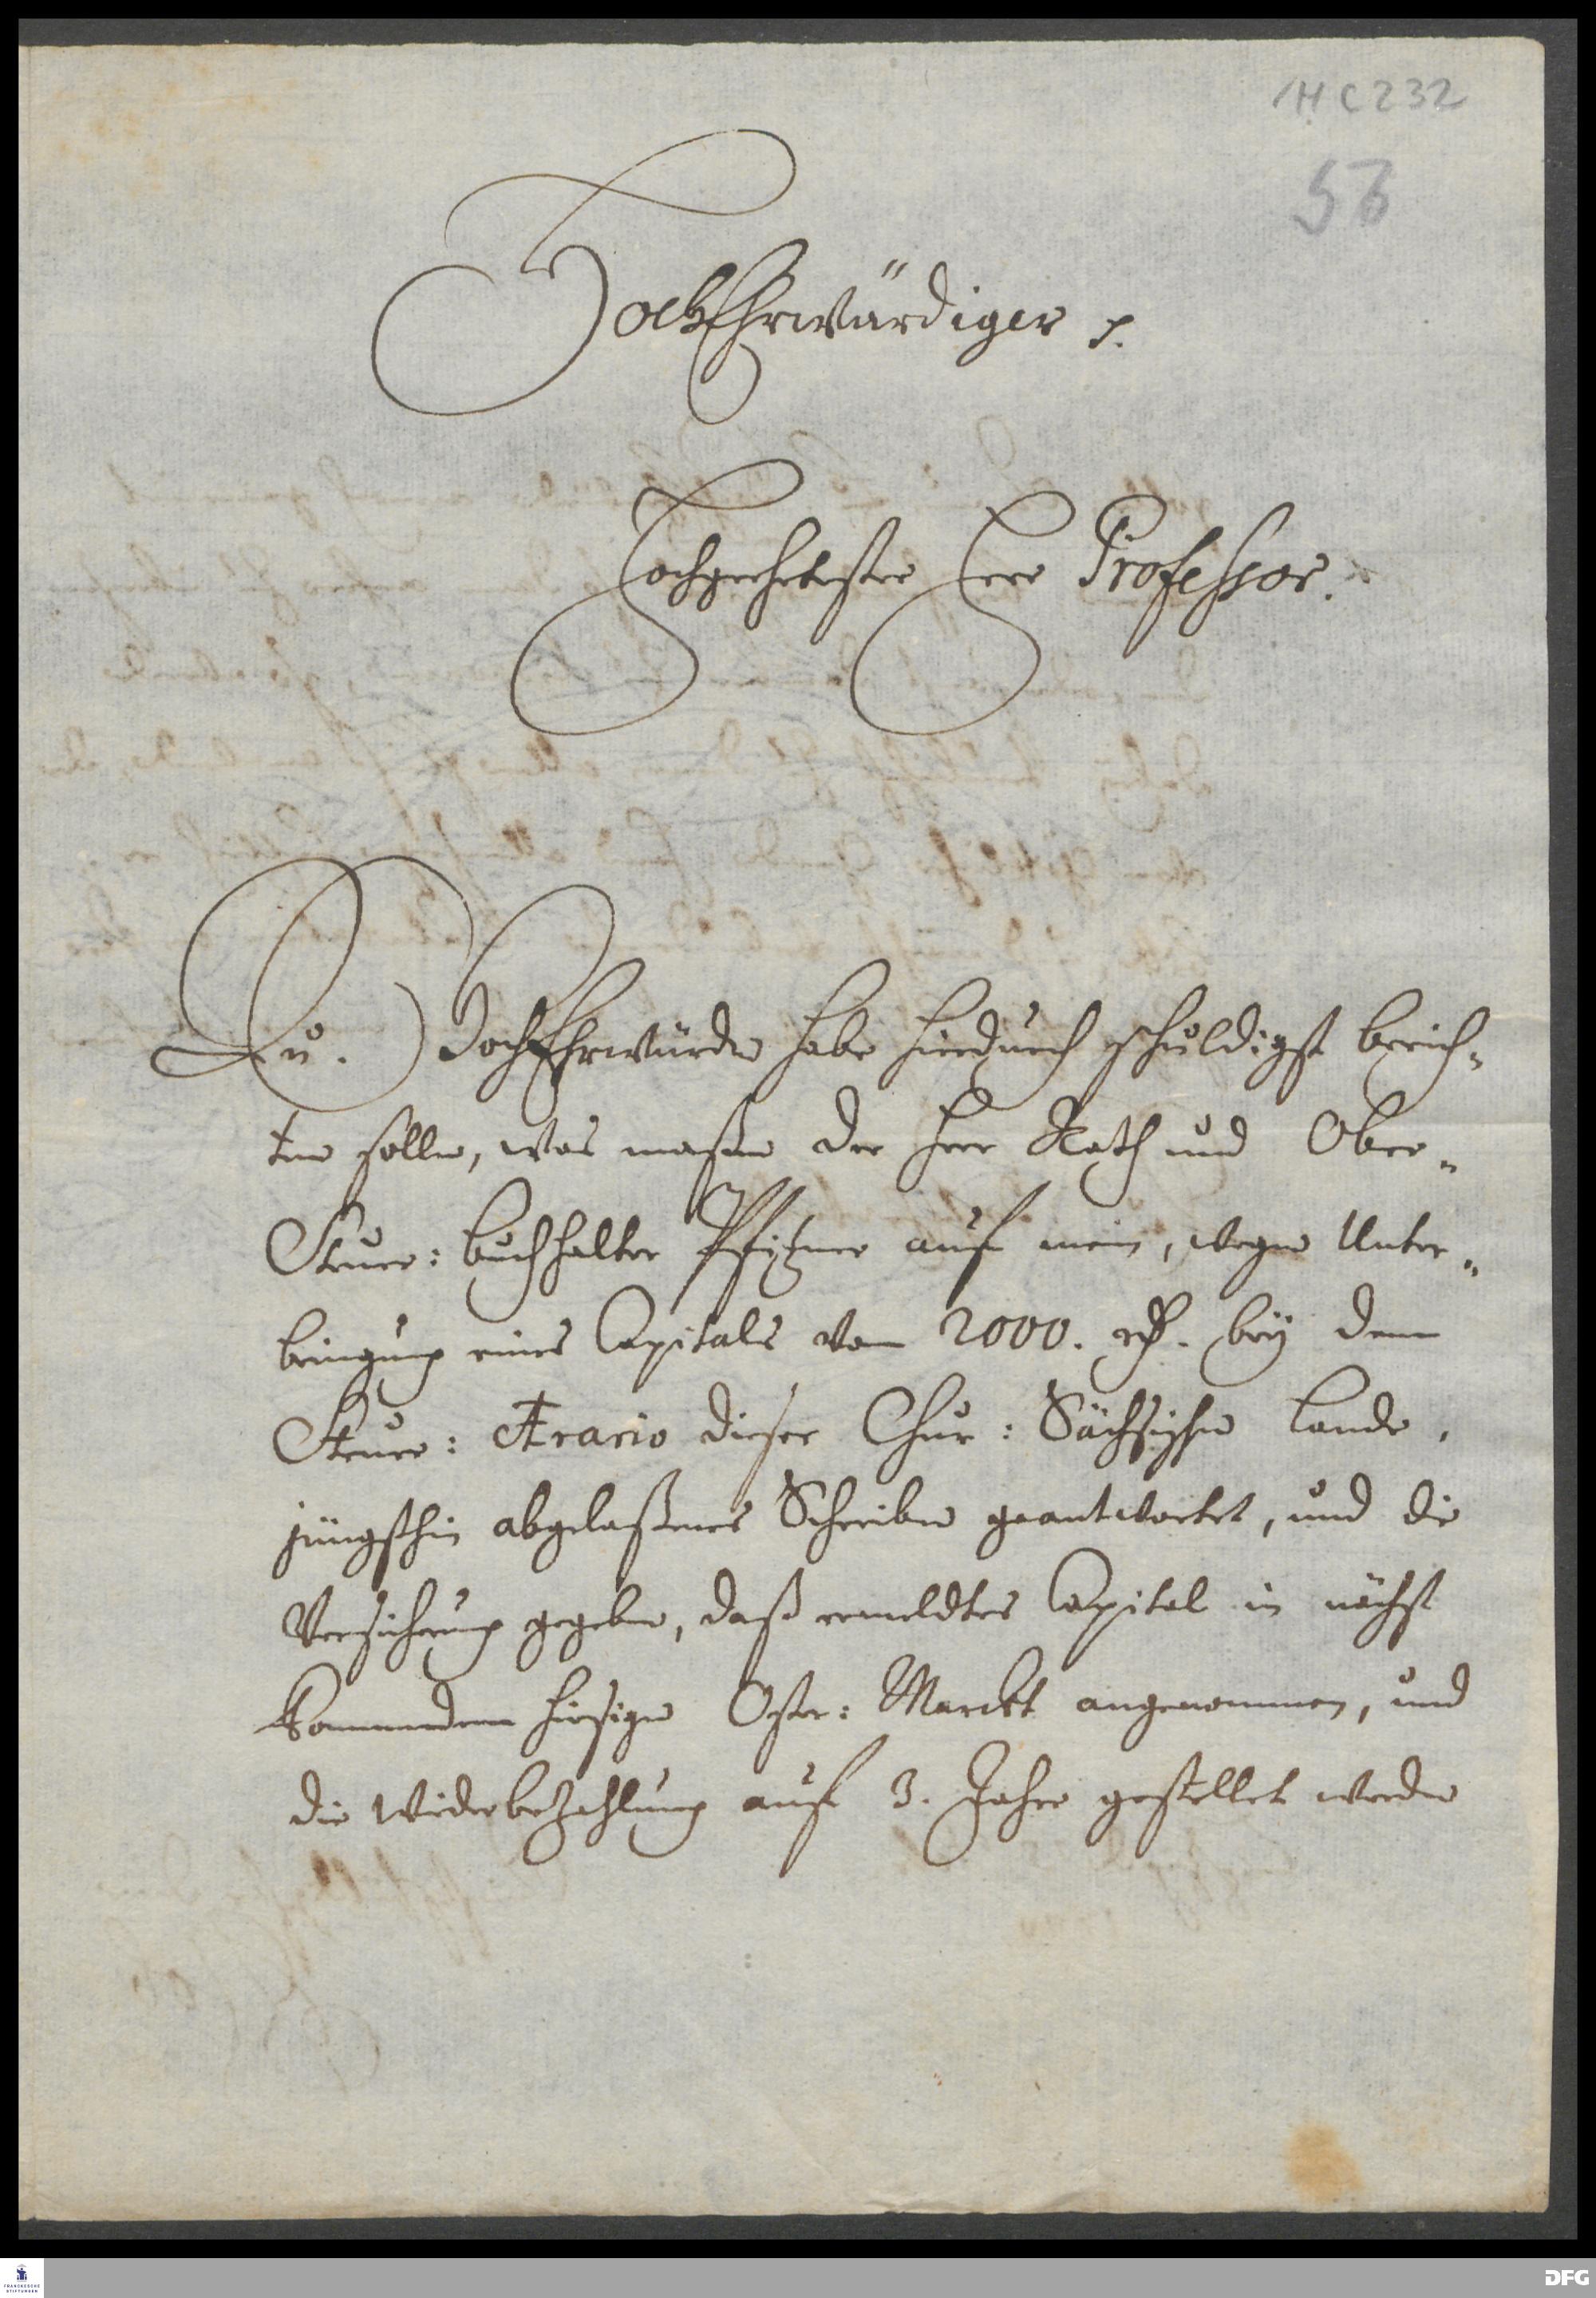 1H C 232
56
HochEhrwürdiger p.
Hochgeehrtester Herr Professor.
Eu. HochEhrwürden habe hierdurch schuldigst berich-
ten sollen, was maßen der Herr Rath und Ober-
Steuer: Buchhalter Pfitzner auf mein, wegen Unter-
bringung eines Capitals von 2000. rthl. bey dem
Steuer: Ærario dieser Chur: Sächsischen Lande,
jüngsthin abgelaßenes Schreiben geantwortet, und die
Versicherung gegeben, daß ermeldtes Capital in nächst
kommendem hiesigen Oster: Marckt angenommen, und
die Wiederbezahlung auf 3. Jahre gestellet werden
FRANCKESCHE
STIFTUNGEN
DFG